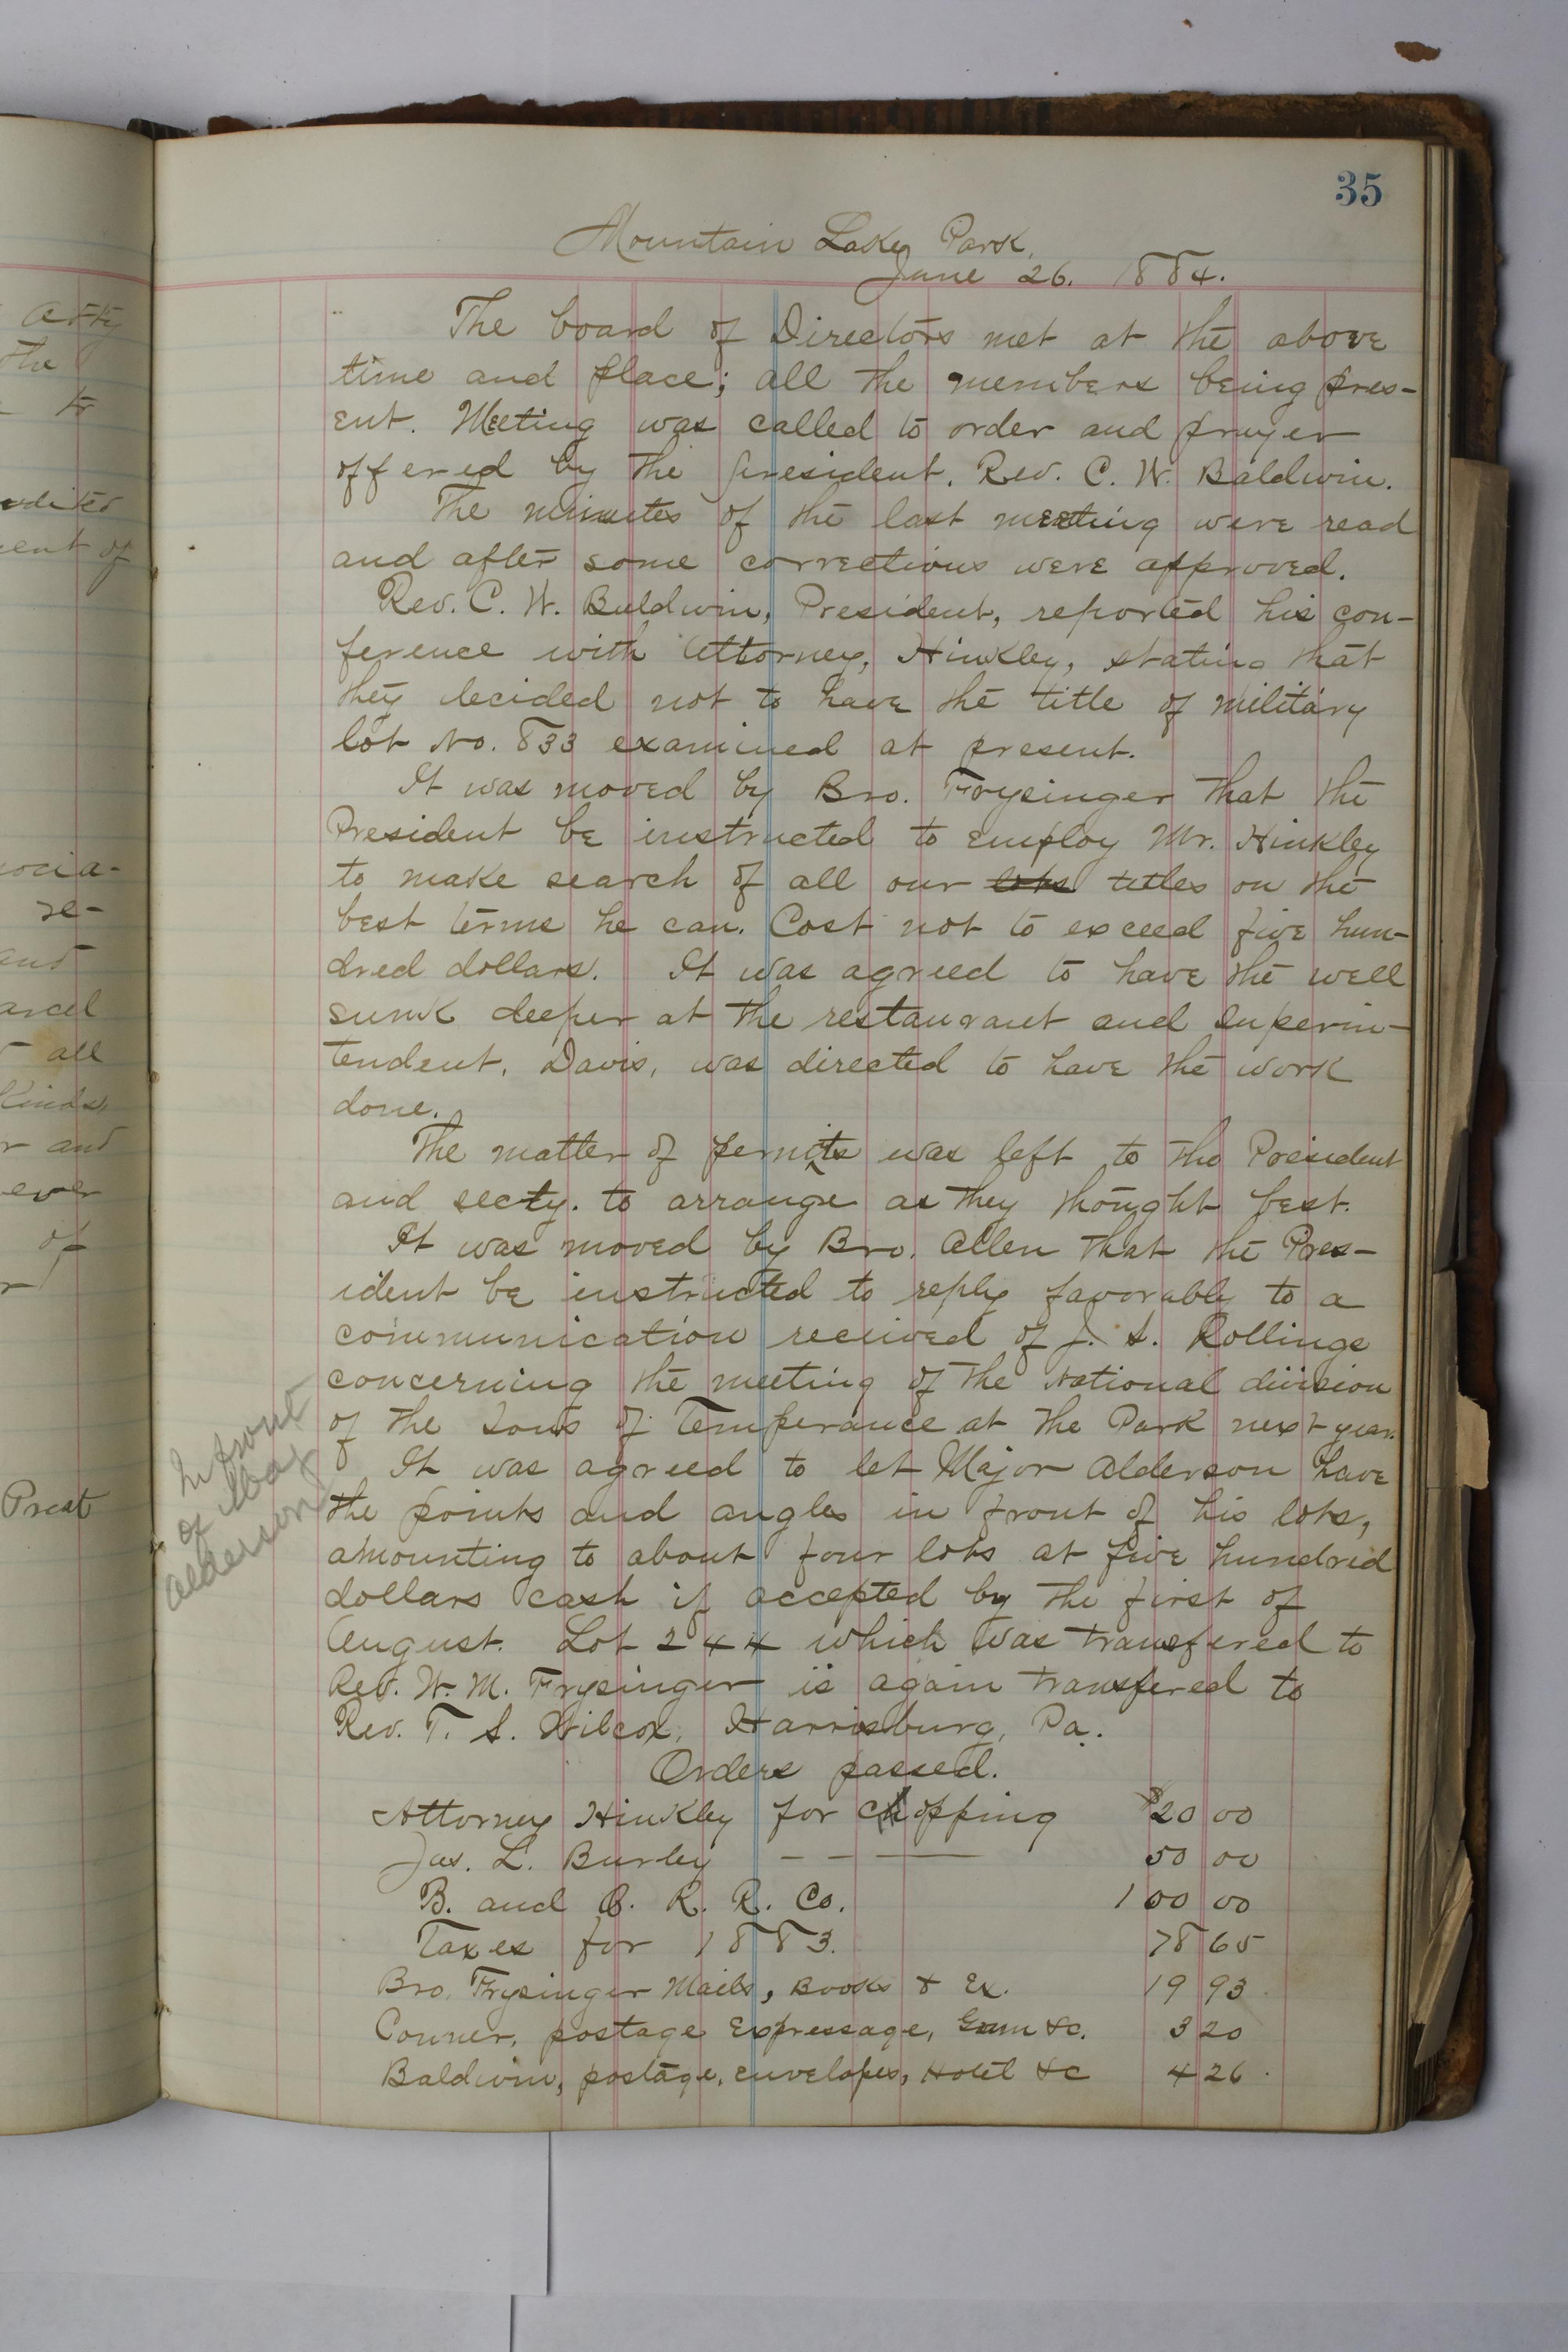 atty
the
to
edited
ent of
ocia-
re-
and
arcel
all
Kinds,
r and
ever
of
r
Prest
35
Mountain Lake Park,
June 26. 1884.
The board of Directors met at the above
time and place; all the members being pres-
ent. Meeting was called to order and prayer
offered by the president, Rev. C. W. Baldwin.
The minutes of the last meeting were read
and after some corrections were approved.
Rev. C. W. Baldwin, President, reported his con-
ference with Attorney, Hinkley, stating that
they decided not to have the title of military
lot No. 833 examined at present.
It was moved by Bro. Frysinger that the
President be instructed to employ Mr. Hinkley
to make search of all our lots titles on the
best terms he can. Cost not to exceed five hun-
dred dollars. It was agreed to have the well
sunk deeper at the restaurant and superin-
tendent, Davis, was directed to have the work
done.
The matter of permits was left to the President
and secty. to arrange as they thought best.
It was moved by Bro. Allen that the Pres-
ident be instructed to reply favorably to a
communication received of J. S. Rollings
concerning the meeting of the National division
of the Sons of Temperance at the Park next year.
It was agreed to let Major Alderson have
the points and angles in front of his lots,
amounting to about four lots at five hundred
dollars cash if accepted by the first of
August. Lot 244 which was transfered to
Rev. W. M. Frysinger is again transfered to
Rev. T. S. Wilcox, Harrisburg, Pa.
In front
of Maj
Alderson
Orders passed.
Attorney Hinkley for chopping $20 00
Jas. L. Burley — — — 50 00
B. and O. R. R. Co. 100 00
Taxes for 1883. 78 65
Bro. Frysinger Mails, Books & Ex. 19 93
Conner, postage Expressage, Gum &c. 3 20
Baldwin, postage, envelopes, Hotel &c 4 26